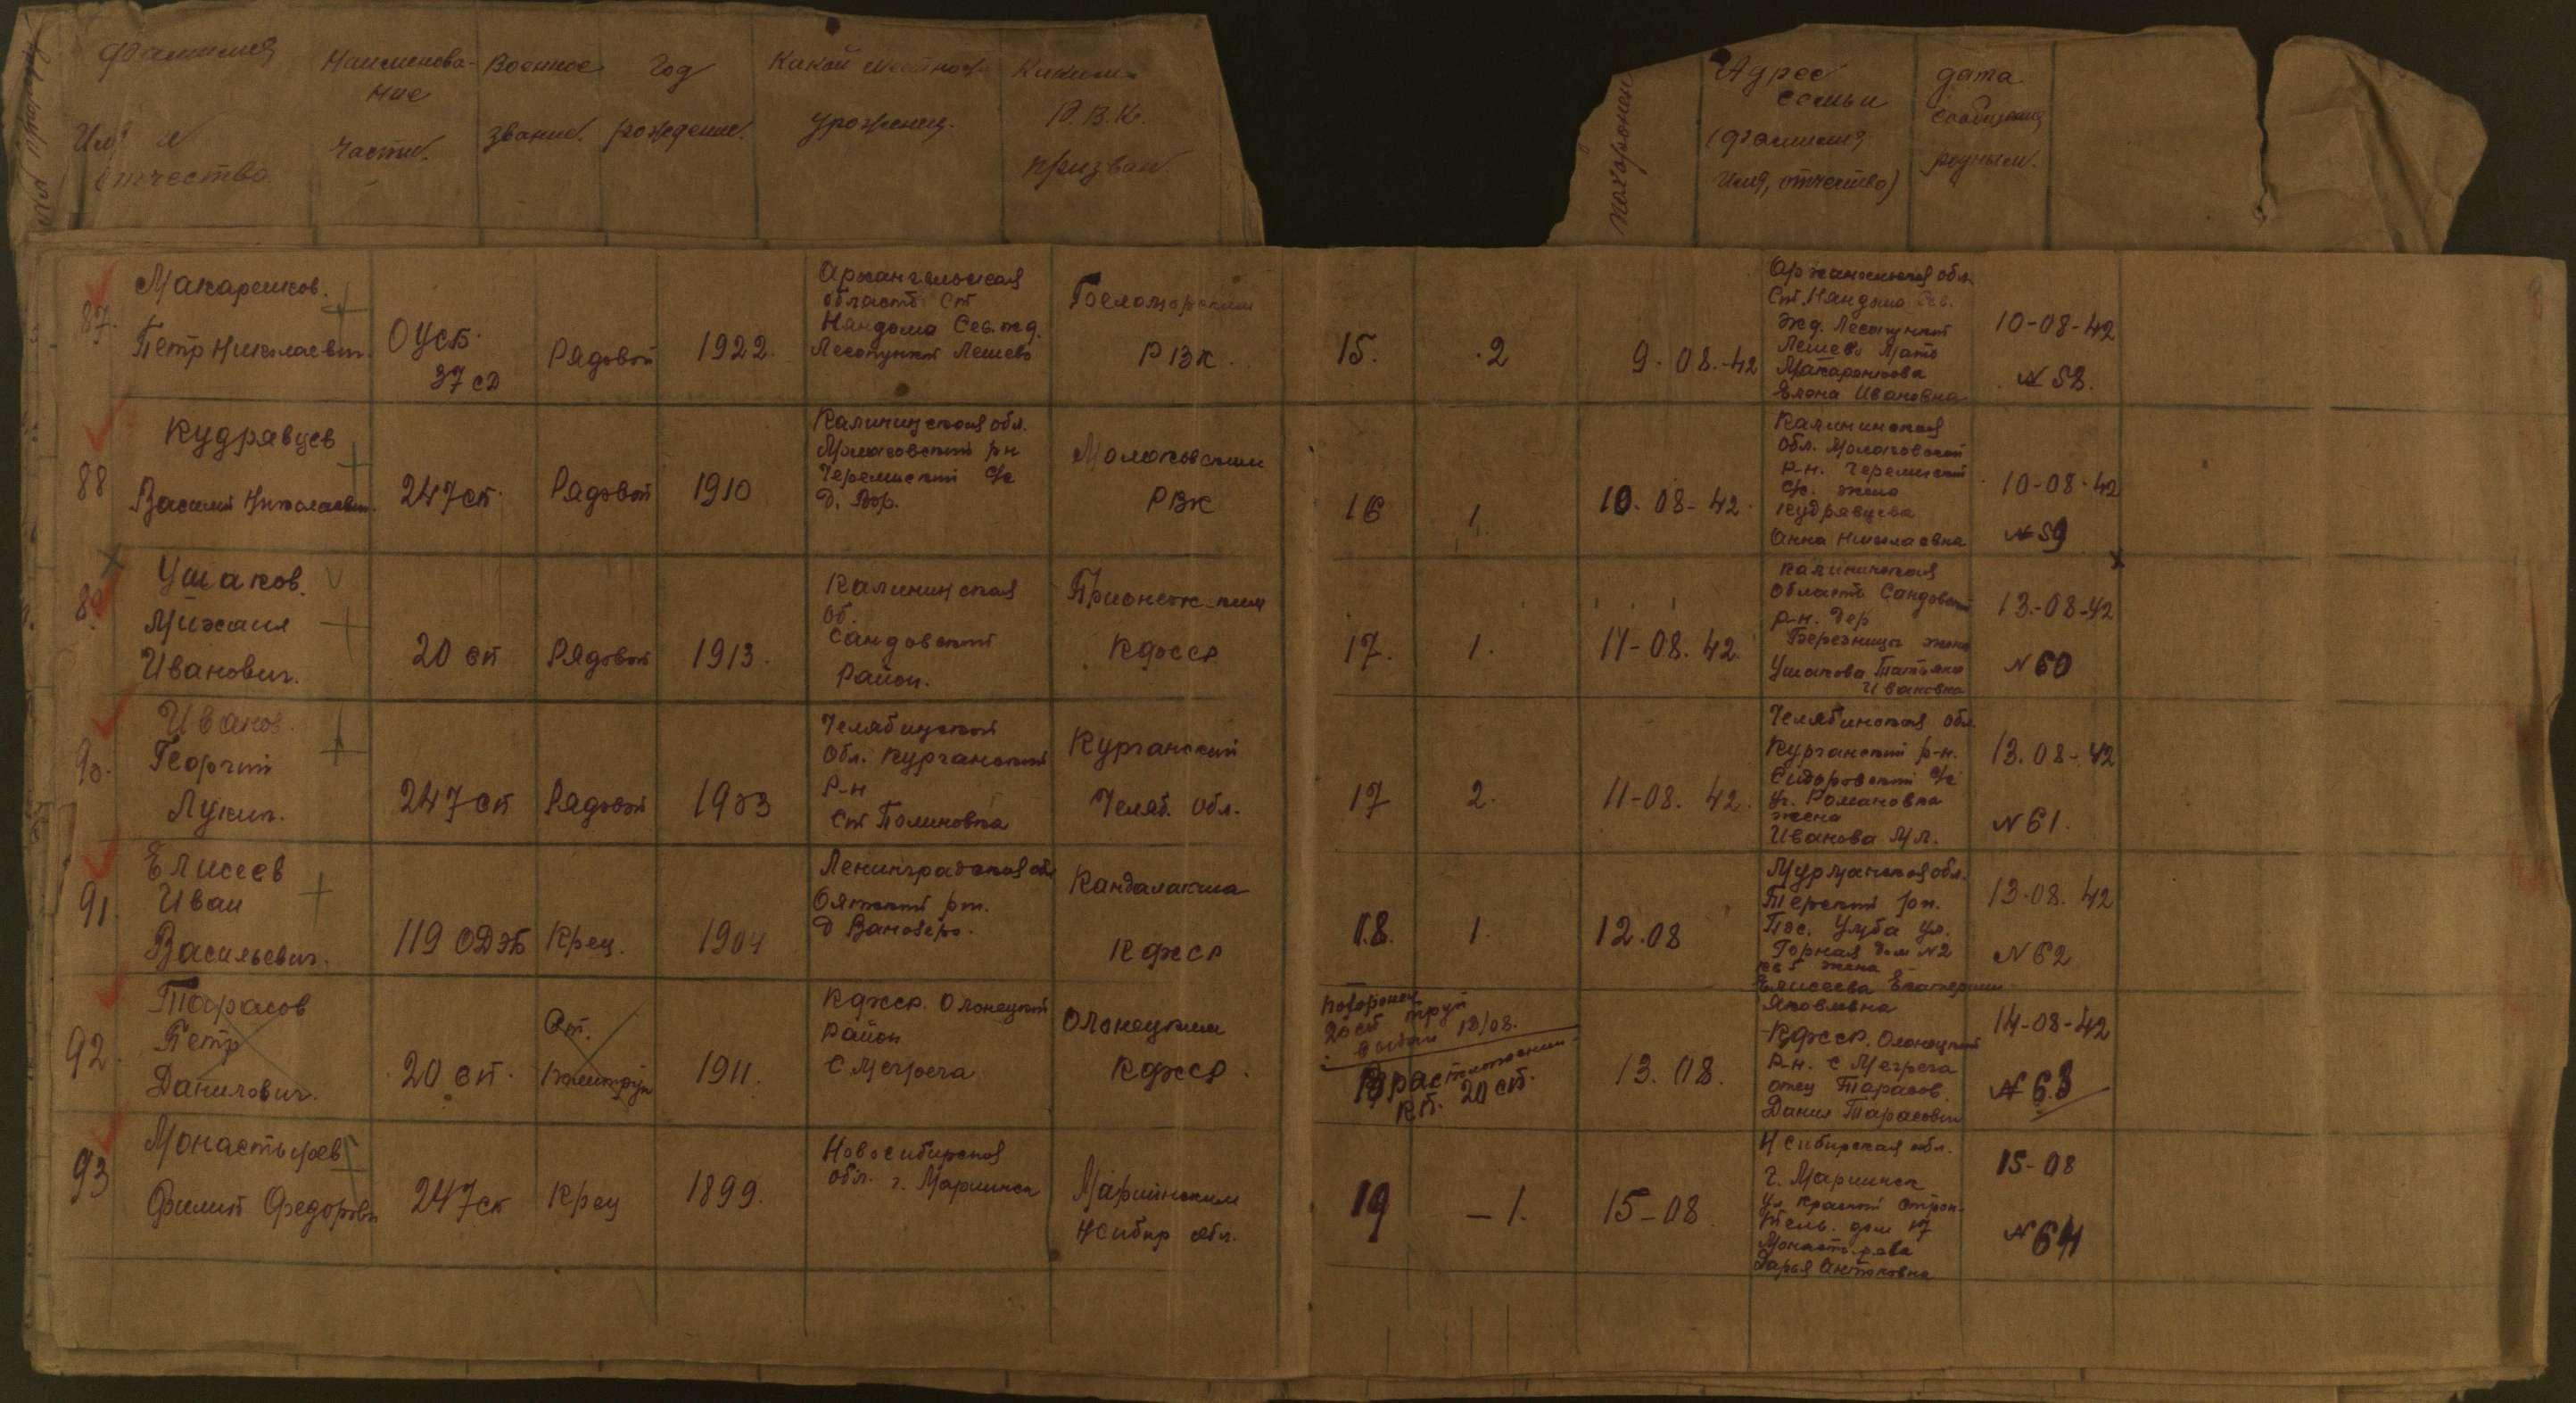 Фамилия
Имя и
отчество
Наименова-
ние
части.
Военное
звание.
Год
рождение.
Какой местност
урожениц.
Каким
Р.В.К.
призван.
похоронен
Адрес
семьи
(фамилия
имя, отчество)
дата
сообщения
родным.
87.
Макаренков.
Петр Николаевич.
37 сд
Рядовой
1922.
Архангельская
область ст
Няндома Сев. жд.
Лесопункт Лешево
РВК.
15.
2
9.08.-42
Архангельская обл.
ст. Няндома Сев.
жд. Лесопункт
Лешево Мать
Макаренкова
Елена Ивановна
10-08-42
N 58.
88
Кудрявцев
Василий Николаевич.
247 сп.
Рядовой
1910
Калининская обл.
Молоковский рн
Черемиский с/с
Д. Бор.
Молоковским
РВК
16
1.
10.08-42.
Калининская
обл. Молоковский
р-н. Черемиский
с/с. жена
Кудрявцева
Анна Николаевна
10-08-42
N 59
89
Ушаков.
Михаил
Иванович.
20 сп
Рядовой
1913.
Калининская
об.
Сандовский
Район.
КФССР
17.
1.
11-08.42.
Калининская
область Сандовский
р-н. дер
Березницы жена
Ушакова Татьяна
Ивановна
13.-08-42
N 60
90.
Иванов.
Георгий
Лукич.
247 сп
Рядовой
1903
Челябинской
обл. Курганский
р-н
ст Полиновка
Курганский
Челяб. обл.
17
2.
11-08.42.
Челябинская обл.
Курганский р-н.
Сидоровский с/с
Романовка
жена
Иванова М Л.
13.08-42
N 61.
91.
Елисеев
Иван
Васильевич.
119 ОДЭБ
Крец.
1904
Ленинградская об
рн.
Кандалакша
КФССР
18.
1.
12.08
Мурманская обл.
Терский рн.
Пос. Умба ул.
Горная дом N2
кв 5 жена
Елисеева Екатерина
Яковлевна
13-08.42
N 62
92.
Тарасов
Петр
Данилович.
20 сп.
1911.
КФССР. Олонецкий
Район
с Мегрега
Олонецким
КФССР.
похоронен
20 сп
13/08.
кп. 20 сп.
13.08.
КФССР. Олонецкий
р-н. с Мегрега
отец Тарасов.
Данил Тарасович
14-08-42
N 63
93
Монастырев
Филип Федоров
247 сп
Крец
1899.
Новосибирская
обл. г. Мариинск
Мариинским
Нсибир обл.
19
-1.
15-08.
Нсибирская обл.
г. Мариинск
дом 17
Монастырева
Дарья Антоновна
15-08
N 64